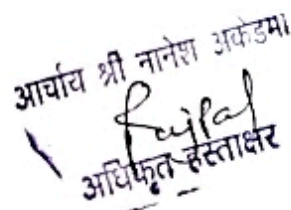 आचार्य श्री नानेश अकेडमी
अधिकृत हस्ताक्षर